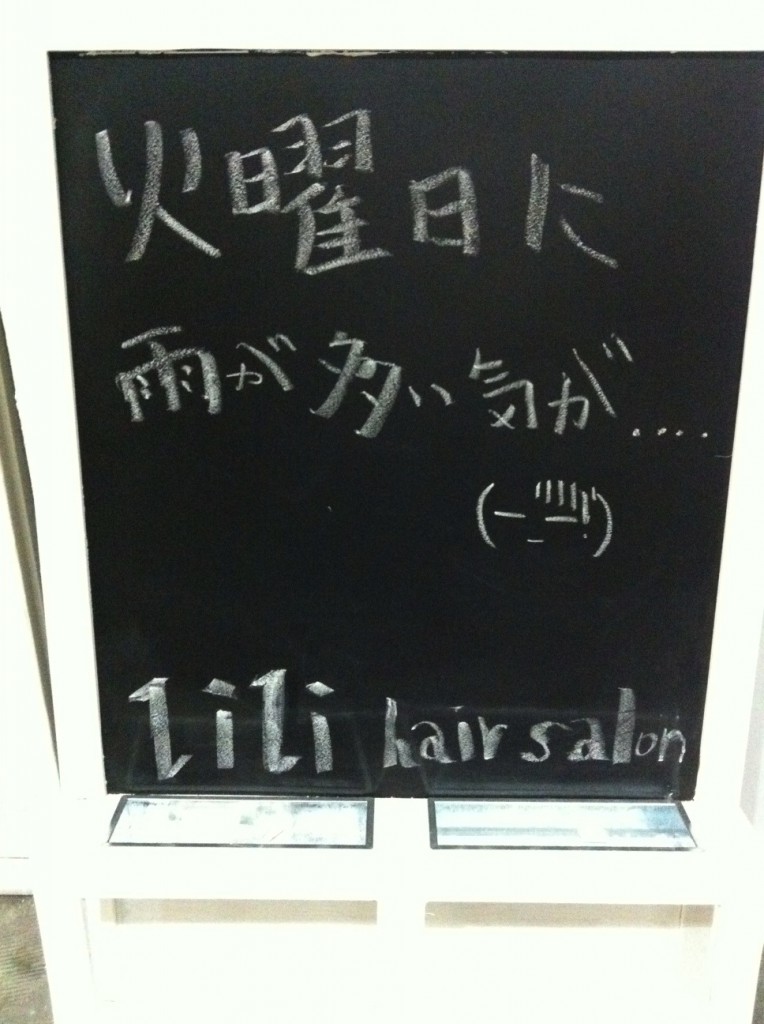 火曜日に
雨が多い気が....
(-_-!)
lili hair salon